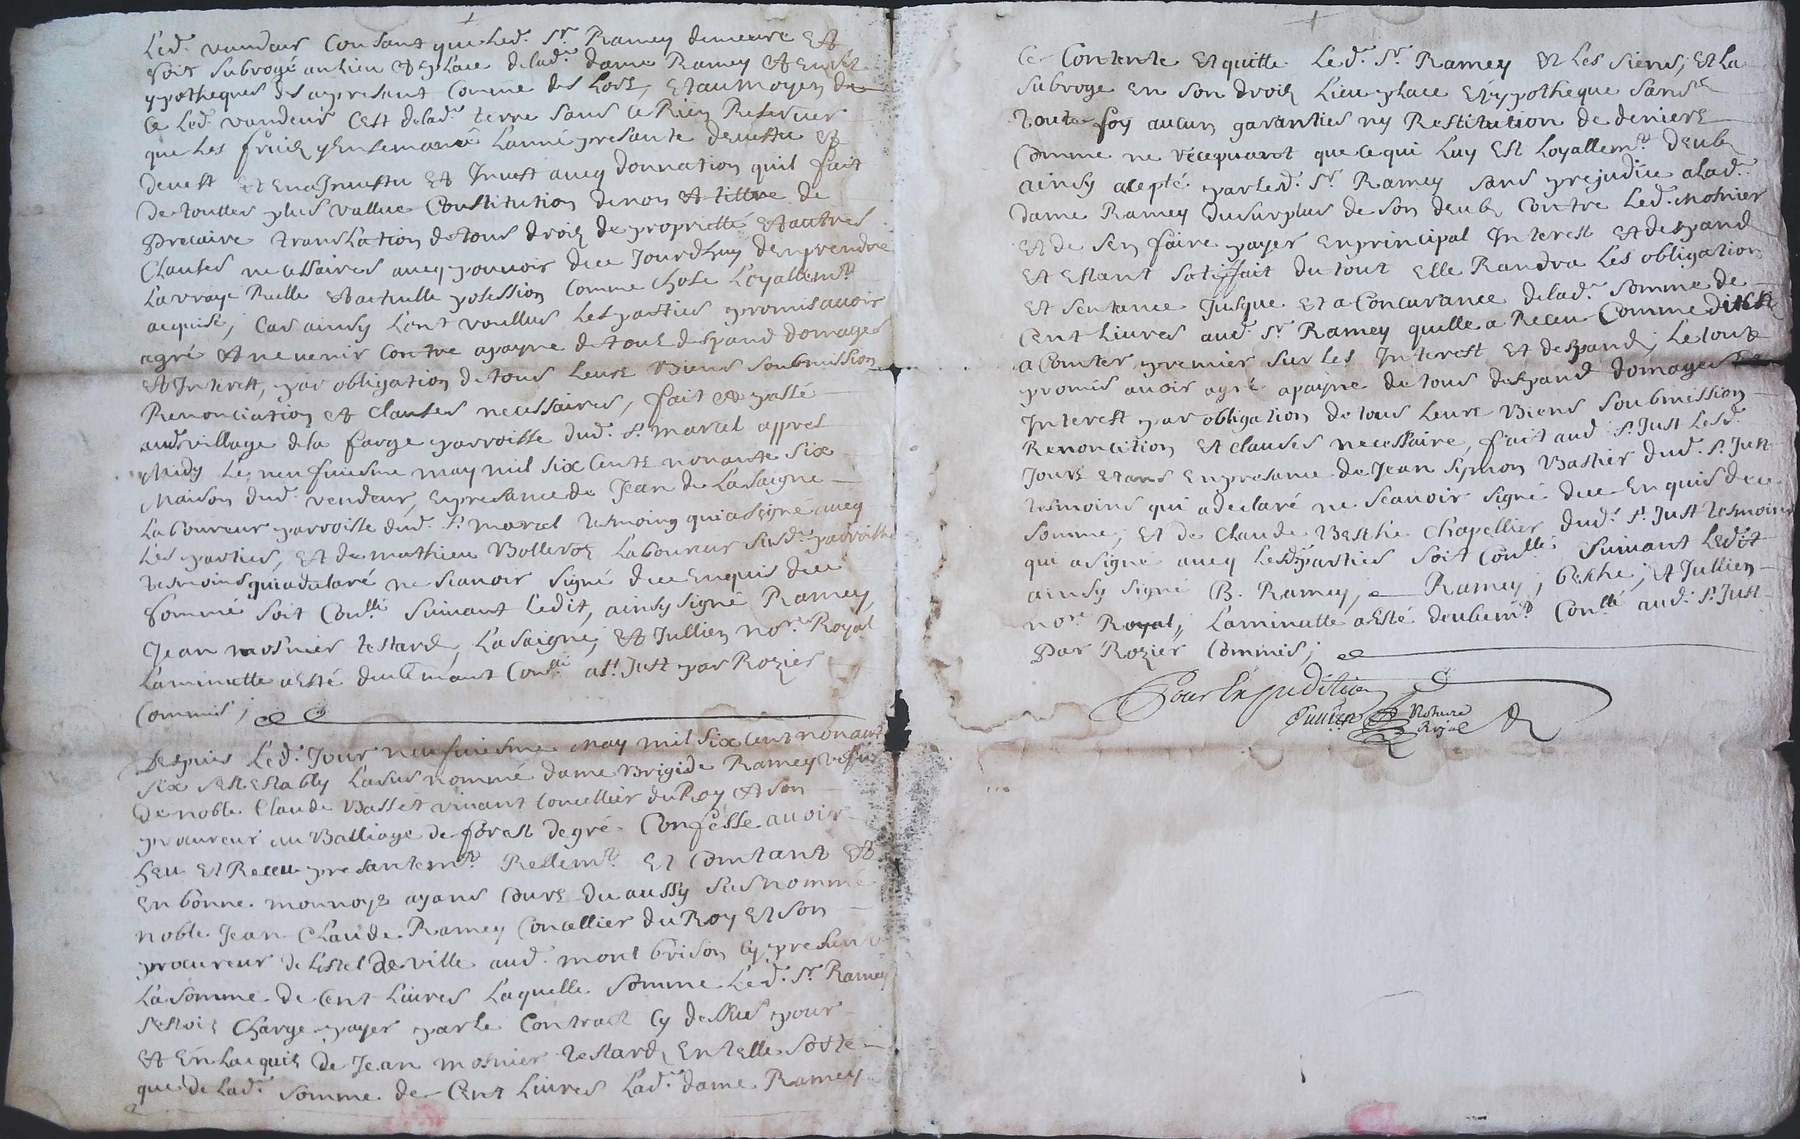 Led. vandeur Consant que Led. Sr. Ramey demeure et
soit subrogé au lieu et place de lad. dame Ramey et en ses
ypotheques des apresant Comme des Lors, et au moyen de
ce Led. vandeur cest de lad. terre sans ce Rien Reserver
que Les fruicz y Ensemancé Lanné presante devestu et
devest et en a Jnvestu et Jnvest avecq donnation quil fait
de touttes plus vallue Constitution de nom et tittre de
precaire translation de tous droicz de proprietté et autres
Clauses necessaires avecq pouvoir de ce Jourdhuy den prendre
La vraye Reelle et actuelle posession Comme chose Loyallemt.
acquise, Car ainsy Lont voullus Les parties promis avoir
agré et ne venir Contre apayne de tous despand domages
et Interest, par obligation de tous Leurs Biens soubmission
Renonciation et clauses necessaires, fait et passé
aud. village de la farge parroisse dud. St. marcel appres
Midy Le neufviesme may mil six Cents nonante six
Maison dud. vendeur, en presance de Jean de Lasaigne
Laboureur parroisse dud. St. marcel tesmoing qui a signé avecq
Les parties, et de mathieu Laboureur susd. parroisse
tesmoins qui a declaré ne scavoir signé de ce enquis de ce
sommé soit Conllé. suivant Ledit, ainsy signé Ramey
Jean mosnier testard, Lasaigne, et Jullien nore. Royal
Laminutte a esté deubemant Conllé a St. Just par Rozier
Commis,
Despuis Led. Jour neufviesme may mil six cent nonant
six sest estably Lasus nommé dame Brigide Ramey veffve
de noble Claude Basset vivant Concellier du Roy et son
procureur au Balliage de forest de gré Confesse avoir
heu et Receu presantemt. Rellemt. et Comtant et
en bonne monnoye ayans cours du aussy susnommé
noble Jean Claude Ramey Concellier du Roy et son
procureur de Lostel de ville aud. montbrison cy presant
La somme de Cent Livres Laquelle somme Led. Sr. Ramey
sestoit Charge payer par le Contract cy dessus pour
et en Lacquit de Jean mosnier testard, en telle sorte
que de Lad. somme de Cent Livres Lad. dame Ramey
ce Contente et quitte Led. Sr. Ramey et Les siens, et La
subroge en son droit Lieu place et ypotheque sans
toute foy aucun garanties ny Restitution de deniers
Comme ne recepvant que ce qui Luy est Loyallemt. deub
ainsy acepté par Led. Sr. Ramey sans prejudice a Lad.
dame Ramey du surplus de son deub Contre Led. Mosnier
et de sen faire payer en principal Interest et despand
et estant satisffait du tout elle Randra Les obligation
et sentance Jusque et a Concurance de lad. somme de
Cent Livres aud. Sr. Ramey quelle a Receu Comme
a Comter premier sur Les Interest et despand, Le tout
promis avoir agré apayne de tous despand domages
Interest par obligation de tous Leurs Biens soubmission
Renoncition et clauses necessaire, fait aud. St. Just Lesd.
Jours et ans en presance de Jean symon Bastier dud. St. Just
tesmoins qui a declaré ne scavoir signé de ce Enquis de ce
sommé, et de Claude Berthé Chapellier dud. St. Just tesmoins
qui a signe avecq Lesd. parties soit Conllé. suivant Ledit
ainsy signé B. Ramey, Ramey, Berthe, et Jullien
nore. Royal, Laminutte a esté deubemt. Conllé aud. St. Just
par Rozier Commis,
Pour Expedition
Jullien Notaire
Royal